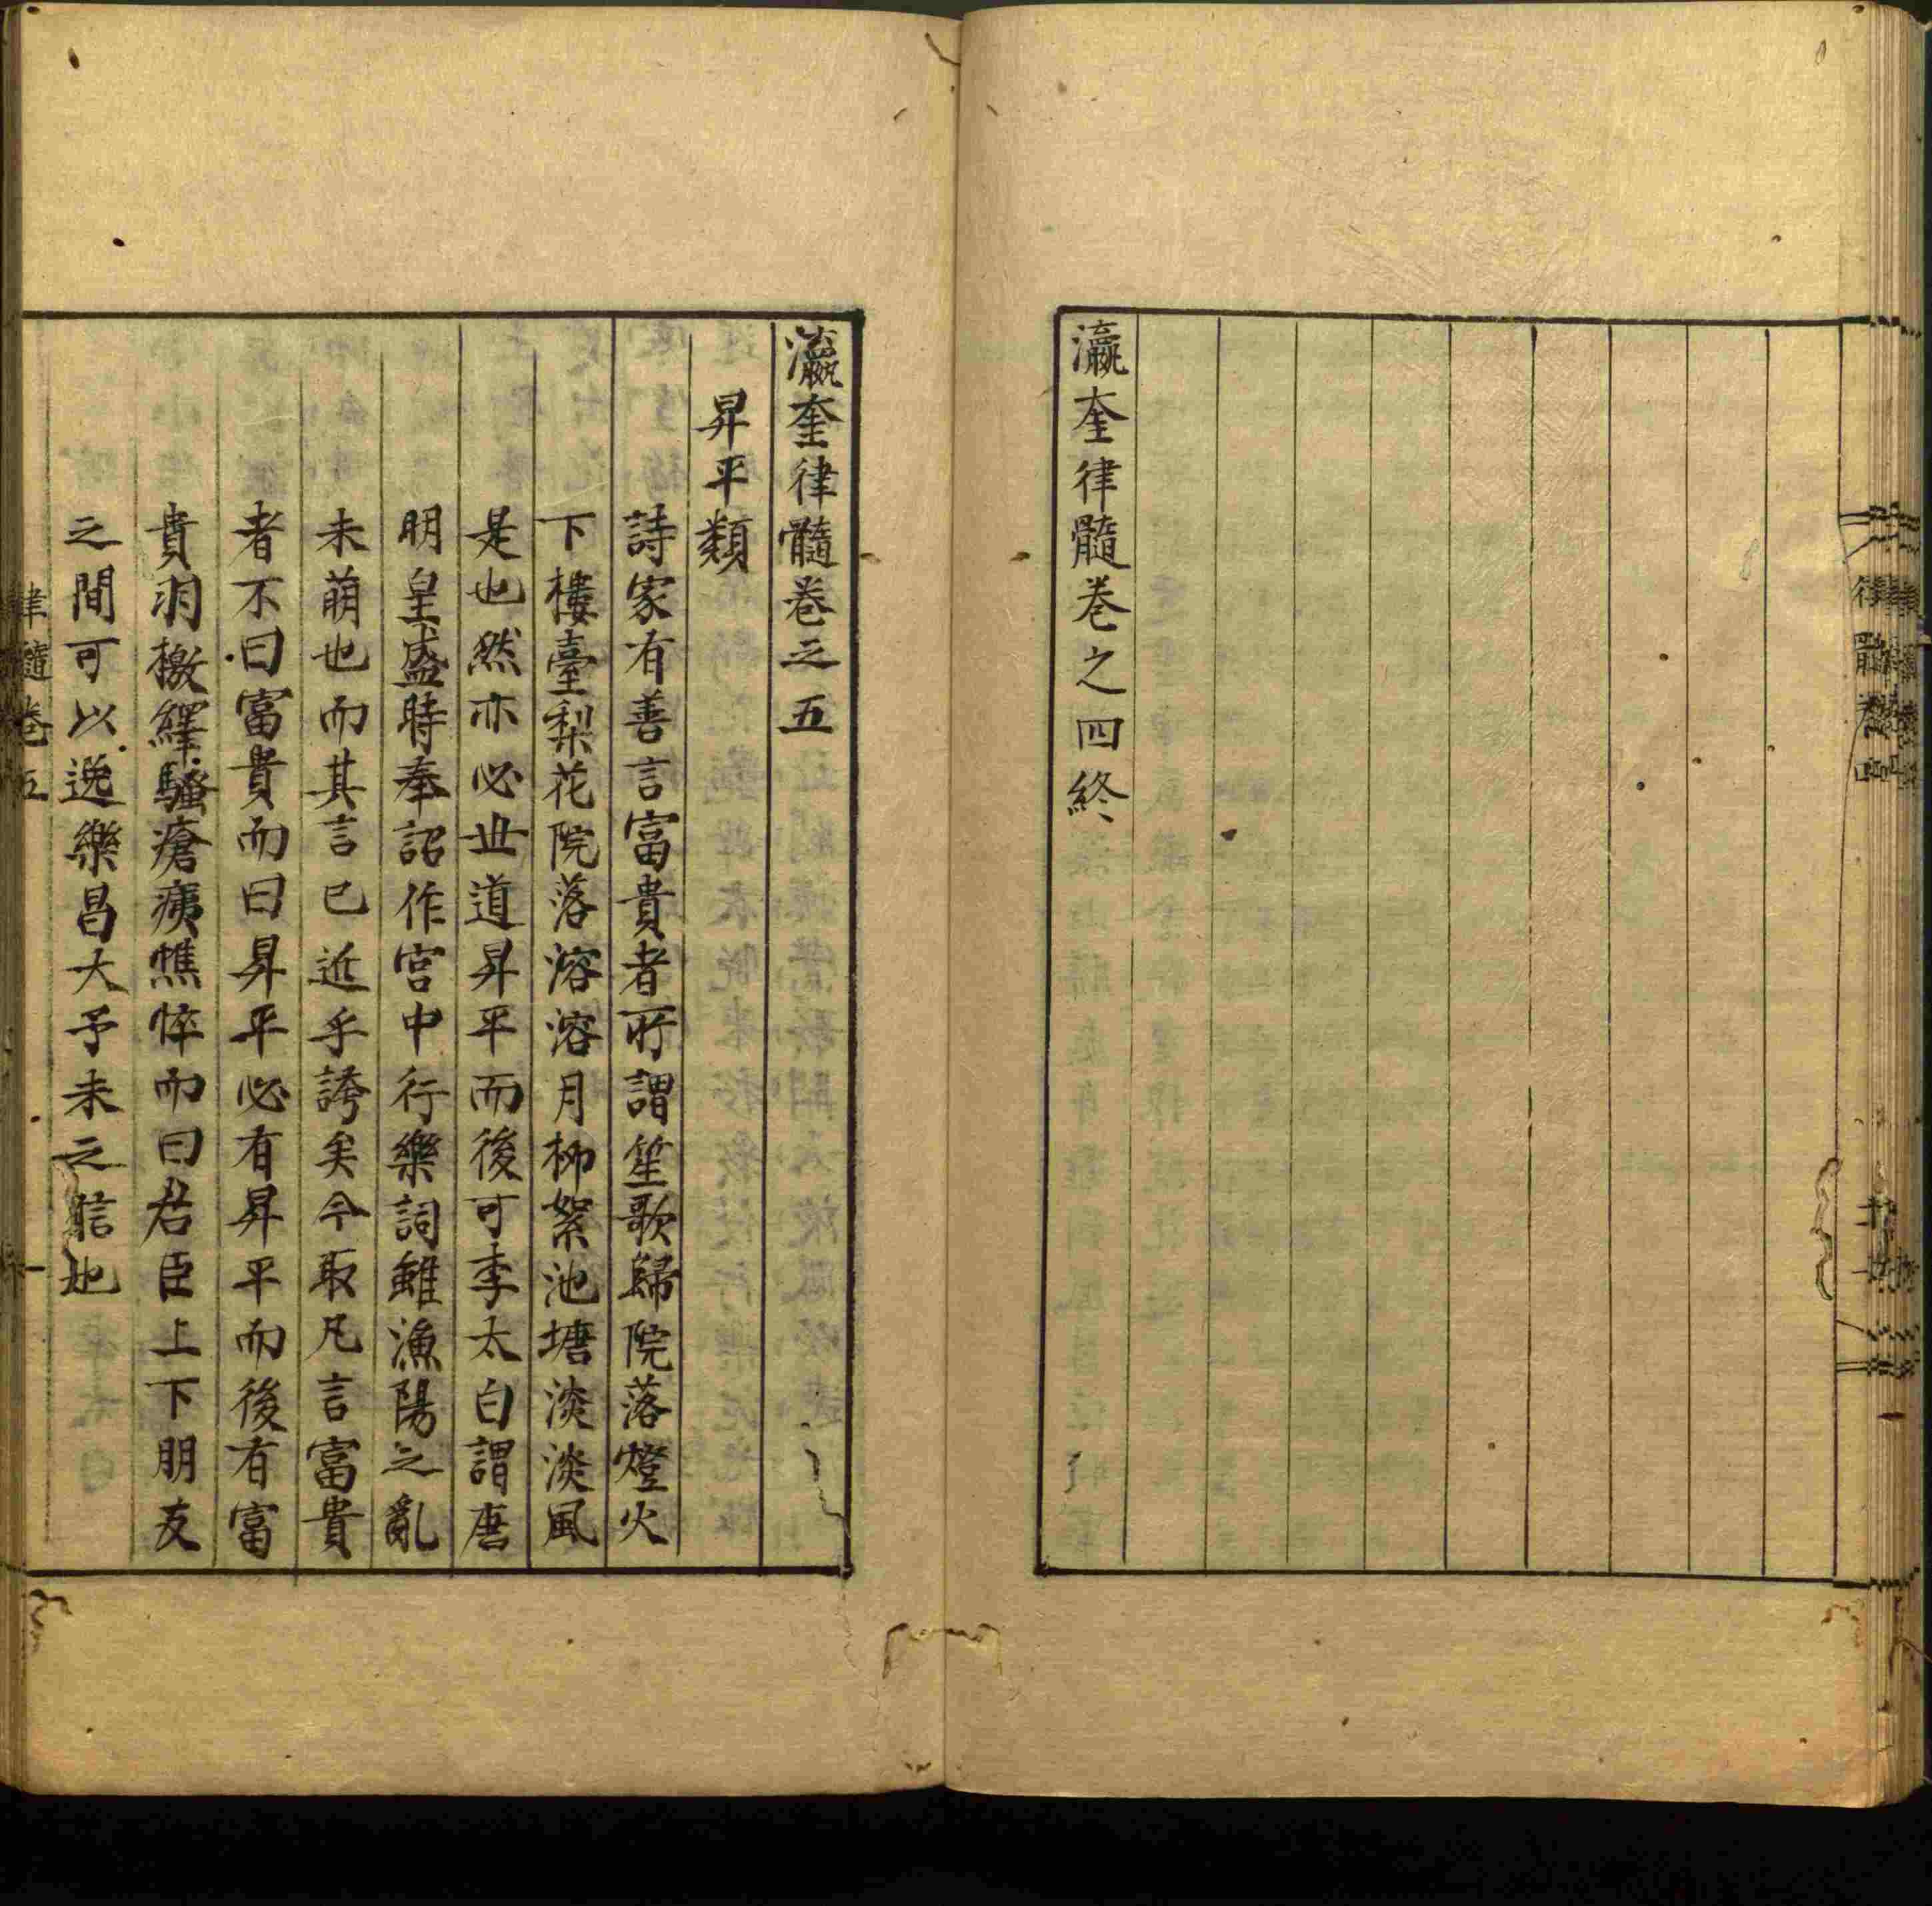 瀛奎律髓卷之四終
瀛奎律髓卷之五
昇平類
詩家有善言富貴者所謂笙歌歸院落燈火
下樓臺梨花院落溶溶月柳絮池塘淡淡風
是也然亦必世道昇平而後可李太白謂唐
明皇盛時奉詔作宫中行樂詞雖漁陽之亂
未萌也而其言已近乎誇矣今取凡言富貴
者不曰富貴而曰昇平必有昇平而後有富
貴羽檄繹騷瘡痍憔悴而曰君臣上下朋友
之間可以逸樂昌大予未之信也
律髓卷五